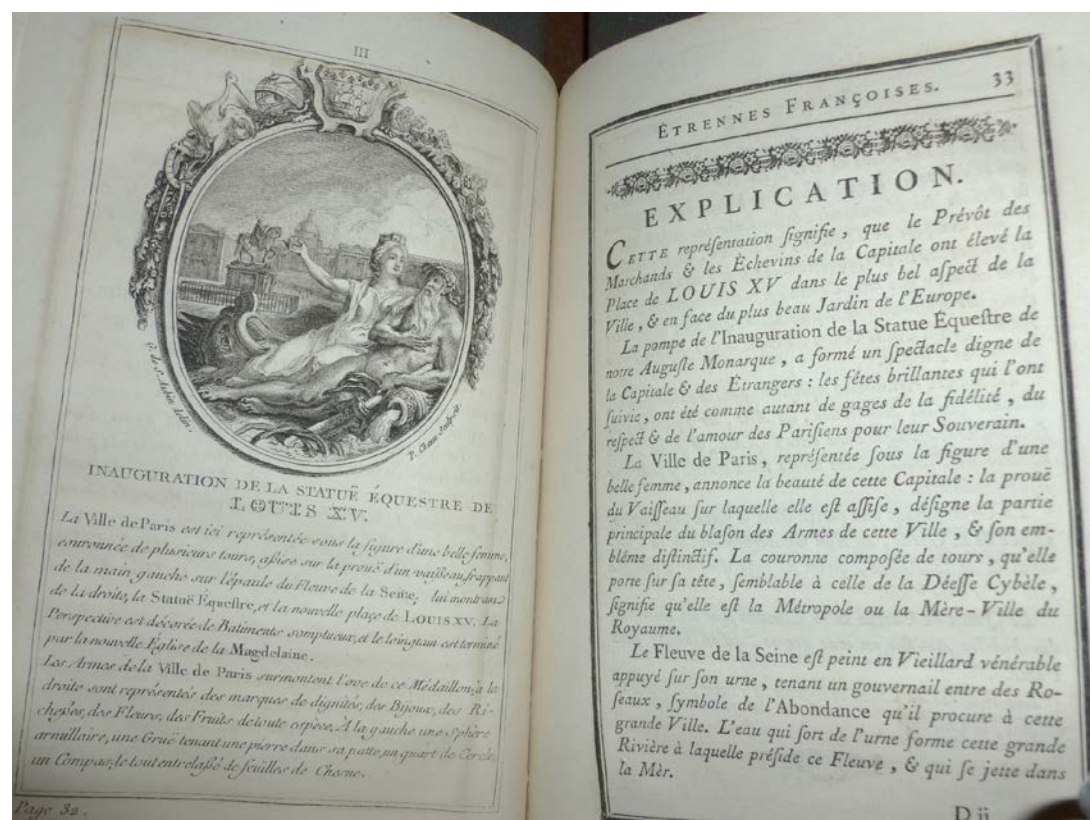 III
G. de St. Aubin delin.
P. Chenu Sculpsit.
INAUGURATION DE LA STATUË ÉQUESTRE DE
LOUIS XV.
La Ville de Paris est ici représentée sous la figure d'une belle femme,
couronnée de plusieurs tours, assise sur la prouë d'un vaisseau, frappant
de la main gauche sur l'épaule du Fleuve de la Seine, lui montrant
de la droite, la Statuë Équestre, et la nouvelle place de LOUIS XV. La
Perspective est décorée de Batiments somptueux, et le loingtain est terminé
par la nouvelle Église de la Magdelaine.
Les Armes de la Ville de Paris surmontent l'ove de ce Médaillon; à la
droite sont représentés des marques de dignités, des Bijoux, des Ri-
chesses, des Fleurs, des Fruits de toute espèce, À la gauche une Sphère
armillaire, une Gruë tenant une pierre dans sa patte, un quart de Cercle,
un Compas; le tout entrelassé de feüilles de Chesne.
Page 32.
ÉTRENNES FRANÇOISES. 33
EXPLICATION.
CETTE repréſentation ſignifie, que le Prévôt des
Marchands & les Échevins de la Capitale ont élevé la
Place de LOUIS XV dans le plus bel aſpect de la
Ville, & en face du plus beau Jardin de l'Europe.
La pompe de l'Inauguration de la Statue Équeſtre de
notre Auguſte Monarque, a formé un ſpectacle digne de
la Capitale & des Étrangers : les fêtes brillantes qui l'ont
ſuivie, ont été comme autant de gages de la fidélité, du
reſpect & de l'amour des Pariſiens pour leur Souverain.
La Ville de Paris, repréſentée ſous la figure d'une
belle femme, annonce la beauté de cette Capitale : la prouë
du Vaiſſeau ſur laquelle elle eſt aſſiſe, déſigne la partie
principale du blaſon des Armes de cette Ville, & ſon em-
blême diſtinctif. La couronne compoſée de tours, qu'elle
porte ſur ſa tête, ſemblable à celle de la Déeſſe Cybèle,
ſignifie qu'elle eſt la Métropole ou la Mère-Ville du
Royaume.
Le Fleuve de la Seine eſt peint en Vieillard vénérable
appuyé ſur ſon urne, tenant un gouvernail entre des Ro-
ſeaux, ſymbole de l'Abondance qu'il procure à cette
grande Ville. L'eau qui ſort de l'urne forme cette grande
Rivière à laquelle préſide ce Fleuve, & qui ſe jette dans
la Mèr.
D ij